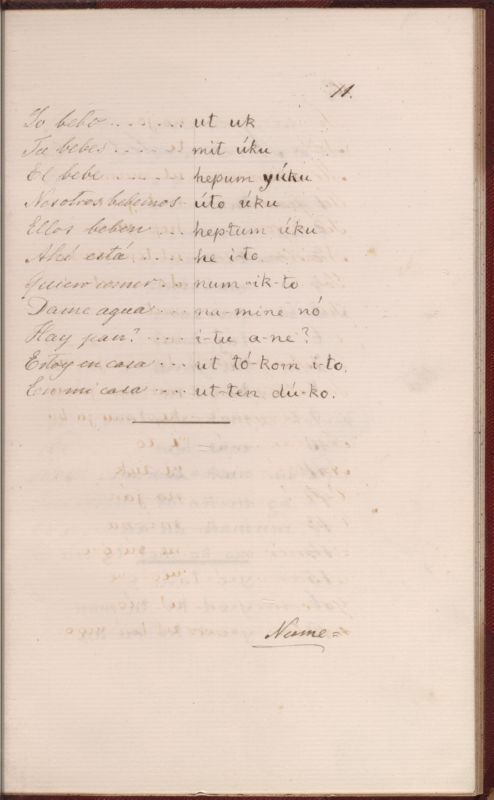 11.
Yo bebo .... ut uk
Tu bebes .... mit úku
El bebe hepum yúku
Nosotros bebemos - úto úku
Ellos beben .. heptum úku
Ahí está .... he i-to.
Quiero comer .. num-ik-to
Dame agua ... na-mine nó
Hay pan? .... i-tu a-ne?
Estoy en casa ... ut tó-kom i-to.
En mi casa .... ut-ten dú-ko.
Nume=